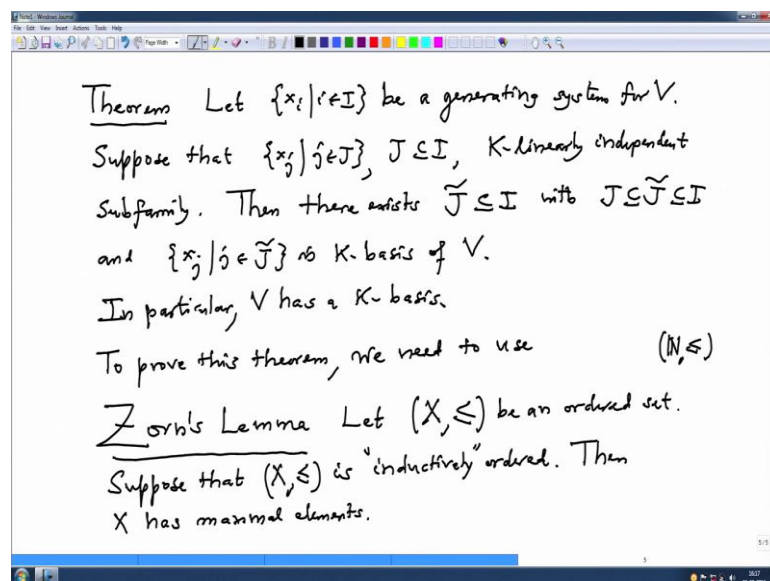 Note1 - Windows Journal
File Edit View Insert Actions Tools Help
Page Width
Theorem Let {x_i | i ∈ I} be a generating system for V.
Suppose that {x_j | j ∈ J}, J ⊆ I, K-linearly independent
Subfamily. Then there exists J̃ ⊆ I with J ⊆ J̃ ⊆ I
and {x_j | j ∈ J̃} is K-basis of V.
In particular, V has a K-basis.
To prove this theorem, we need to use (ℕ, ≤)
Zorn's Lemma Let (X, ≤) be an ordered set.
Suppose that (X, ≤) is "inductively" ordered. Then
X has maximal elements.
5/5
5
16:17